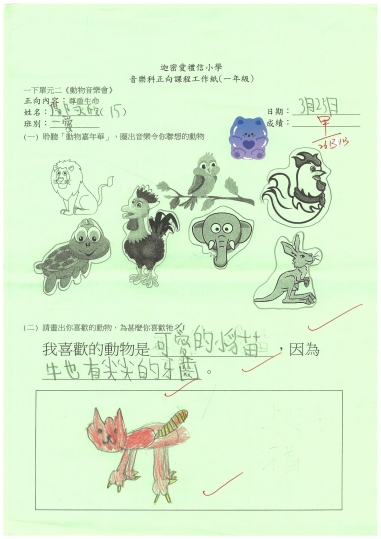 迦密愛禮信小學
音樂科正向課程工作紙(一年級)
一下單元二《動物音樂會》
正向內容：尊重生命
姓名： (15) 日期：3月23日
班別：一愛 成績：甲
(一) 聆聽「動物嘉年華」、圈出音樂令你聯想的動物
(二) 請畫出你喜歡的動物，為甚麼你喜歡牠？
我喜歡的動物是可愛的小猫，因為
牛也有尖尖的牙齒。